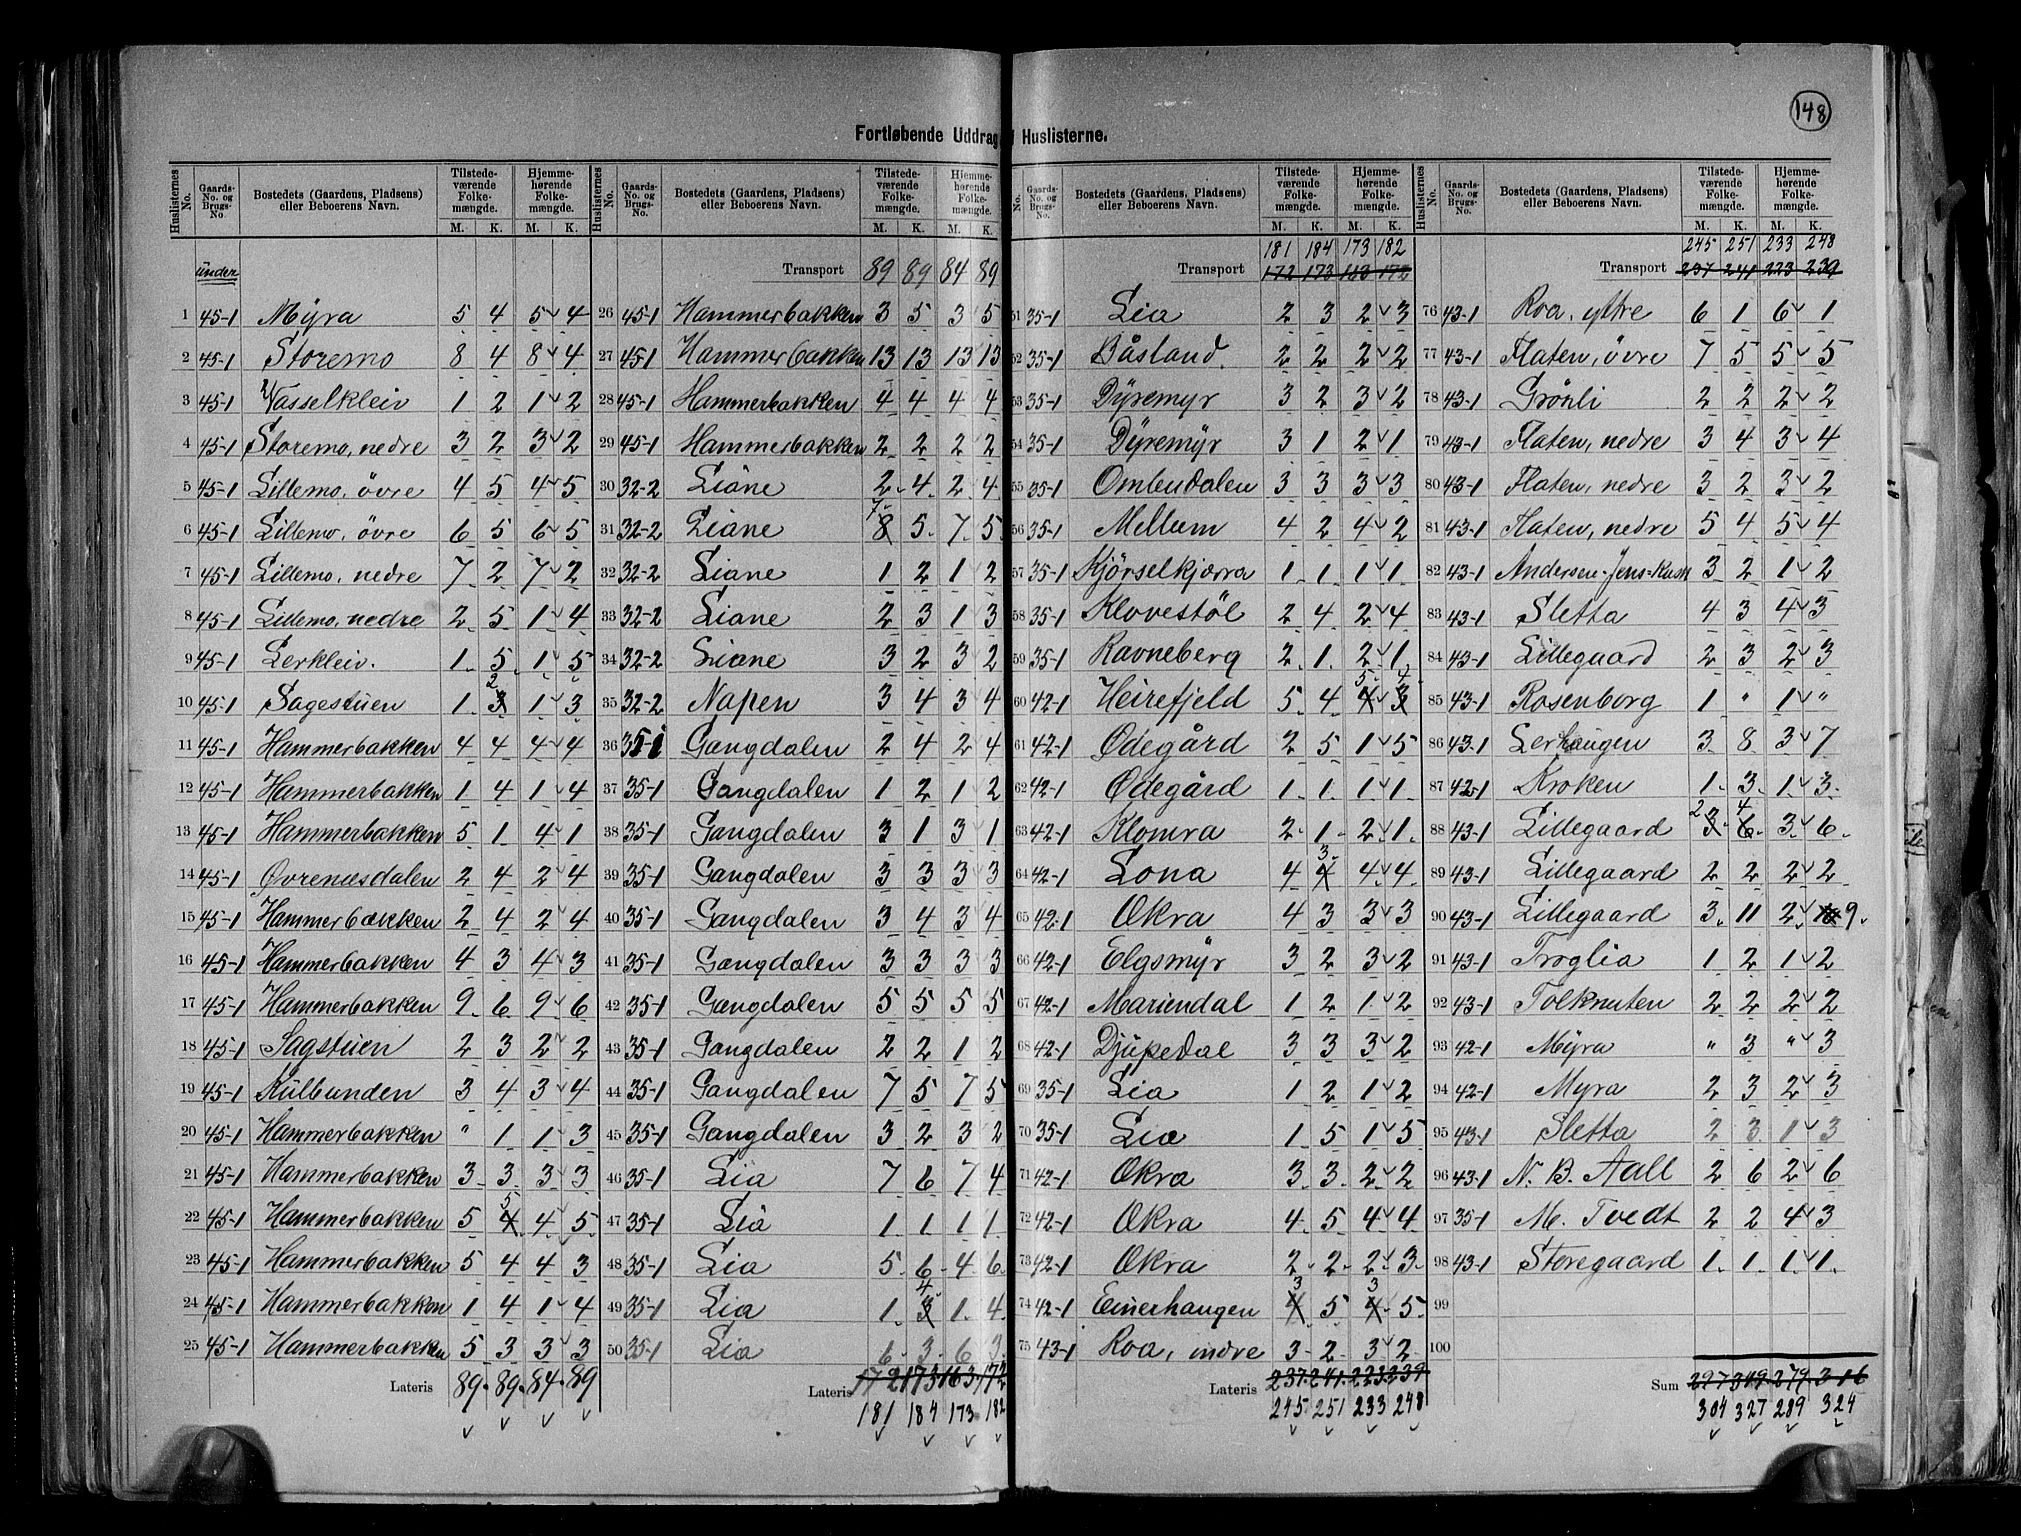 148
Fortløbende Uddrag Huslisterne.
Huslisternes No. | Gaards-No. og Brugs-No. | Bostedets (Gaardens, Pladsens) eller Beboerens Navn. | Tilstedeværende Folkemængde. M. K. | Hjemmehørende Folkemængde. M. K.
under
1 45-1 Myra 5 4 5 4
2 45-1 Storemo 8 4 8 4
3 45-1 Vasselkleiv 1 2 1 2
4 45-1 Storemo, nedre 3 2 3 2
5 45-1 Lillemo, övre 4 5 4 5
6 45-1 Lillemo, övre 6 5 6 5
7 45-1 Lillemo, nedre 7 2 7 2
8 45-1 Lillemo, nedre 2 5 1 4
9 45-1 Lerkleiv. 1 5 1 5
10 45-1 Sagestuen 1 2 3 1 3
11 45-1 Hammerbakken 4 4 4 4
12 45-1 Hammerbakken 1 4 1 4
13 45-1 Hammerbakken 5 1 4 1
14 45-1 Øvrenæsdalen 2 4 2 4
15 45-1 Hammerbakken 2 4 2 4
16 45-1 Hammerbakken 4 3 4 3
17 45-1 Hammerbakken 9 6 9 6
18 45-1 Sagstuen 2 3 2 2
19 45-1 Kulbunden 3 4 3 4
20 45-1 Hammerbakken " 1 1 3
21 45-1 Hammerbakken 3 3 3 3
22 45-1 Hammerbakken 5 5 4 4 5
23 45-1 Hammerbakken 5 4 4 3
24 45-1 Hammerbakken 1 4 1 4
25 45-1 Hammerbakken 5 3 3 3
Lateris 89. 89. 84. 89
Huslisternes No. | Gaards-No. og Brugs-No. | Bostedets (Gaardens, Pladsens) eller Beboerens Navn. | Tilstedeværende Folkemængde. M. K. | Hjemmehørende Folkemængde. M. K.
Transport 89 89 84 89
26 45-1 Hammerbakken 3 5 3 5
27 45-1 Hammerbakken 13 13 13 13
28 45-1 Hammerbakken 4 4 4 4
29 45-1 Hammerbakken 2 2 2 2
30 32-2 Liane 2 4 2 4
31 32-2 Liane 7 8 5 7 5
32 32-2 Liane 1 2 1 2
33 32-2 Liane 2 3 1 3
34 32-2 Liane 3 2 3 2
35 32-2 Napen 3 4 3 4
36 35-1 Gangdalen 2 4 2 4
37 35-1 Gangdalen 1 2 1 2
38 35-1 Gangdalen 3 1 3 1
39 35-1 Gangdalen 3 3 3 3
40 35-1 Gangdalen 3 4 3 4
41 35-1 Gangdalen 3 3 3 3
42 35-1 Gangdalen 5 5 5 5
43 35-1 Gangdalen 2 2 1 2
44 35-1 Gangdalen 7 5 7 5
45 35-1 Gangdalen 3 2 3 2
46 35-1 Lia 7 6 7 4
47 35-1 Lia 1 1 1 1
48 35-1 Lia 5 6 4 6
49 35-1 Lia 1 4 3 1 4
50 35-1 Lia 6 3 6 3
Lateris 172 173 163 172
181 184 173 182
No. | Gaards-No. og Brugs-No. | Bostedets (Gaardens, Pladsens) eller Beboerens Navn. | Tilstedeværende Folkemængde. M. K. | Hjemmehørende Folkemængde. M. K.
181 184 173 182
Transport 172 173 163 172
51 35-1 Lia 2 3 2 3
52 35-1 Båsland. 2 2 2 2
53 35-1 Dyremyr 3 2 3 2
54 35-1 Dyremyr 3 1 2 1
55 35-1 Ombudalen 3 3 3 3
56 35-1 Mellum 4 2 4 2
57 35-1 Kjörselkjærra 1 1 1 1
58 35-1 Klovestöl 2 4 2 4
59 35-1 Ravneberg 2 1 2 1
60 42-1 Heirefjeld 5 4 5 4 4 3
61 42-1 Ødegård 2 5 1 5
62 42-1 Ødegård 1 1 1 1
63 42-1 Klomra 2 1 2 1
64 42-1 Lona 4 3 4 4 4
65 42-1 Økra 4 3 3 3
66 42-1 Elgsmyr 3 2 3 2
67 42-1 Mariendal 1 2 1 2
68 42-1 Djupedal 3 3 3 2
69 35-1 Lia 1 2 1 2
70 35-1 Lia 1 5 1 5
71 42-1 Økra 3 3 2 2
72 42-1 Økra 4 5 4 4
73 42-1 Økra 2 2 2 3
74 42-1 Einerhaugen 3 4 5 3 4 5
75 43-1 Roa, indre 3 2 3 2
Lateris 237. 241. 223. 239
245 251 233 248
Huslisternes No. | Gaards-No. og Brugs-No. | Bostedets (Gaardens, Pladsens) eller Beboerens Navn. | Tilstedeværende Folkemængde. M. K. | Hjemmehørende Folkemængde. M. K.
245 251 233 248
Transport 237 241 223 239
76 43-1 Roa, ytre 6 1 6 1
77 43-1 Flaten, övre 7 5 5 5
78 43-1 Grönli 2 2 2 2
79 43-1 Flaten, nedre 3 4 3 4
80 43-1 Flaten, nedre 3 2 3 2
81 43-1 Flaten, nedre 5 4 5 4
82 43-1 Andersen, Jens 3 2 1 2
83 43-1 Sletta 4 3 4 3
84 43-1 Lillegaard 2 3 2 3
85 43-1 Rosenborg 1 " 1 "
86 43-1 Lerhaugen 3 8 3 7
87 42-1 Kroken 1 3 1 3
88 43-1 Lillegaard 2 3 4 6 3 6
89 43-1 Lillegaard 2 2 2 2
90 43-1 Lillegaard 3 11 2 10 9
91 43-1 Troglia 1 2 1 2
92 43-1 Tolknuten 2 2 2 2
93 42-1 Myra " 3 " 3
94 42-1 Myra 2 3 2 3
95 43-1 Sletta 2 3 1 3
96 43-1 N. B. Aall 2 6 2 6
97 35-1 M. Tvedt 2 2 4 3
98 43-1 Storegaard 1 1 1 1
99
100
Sum 297 319 279 316
304 327 289 324